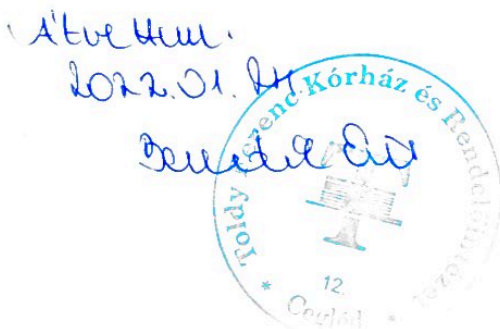 Átvettem.
2022.01.24.
Toldy Ferenc Kórház és Rendelőintézet
12.
Cegléd